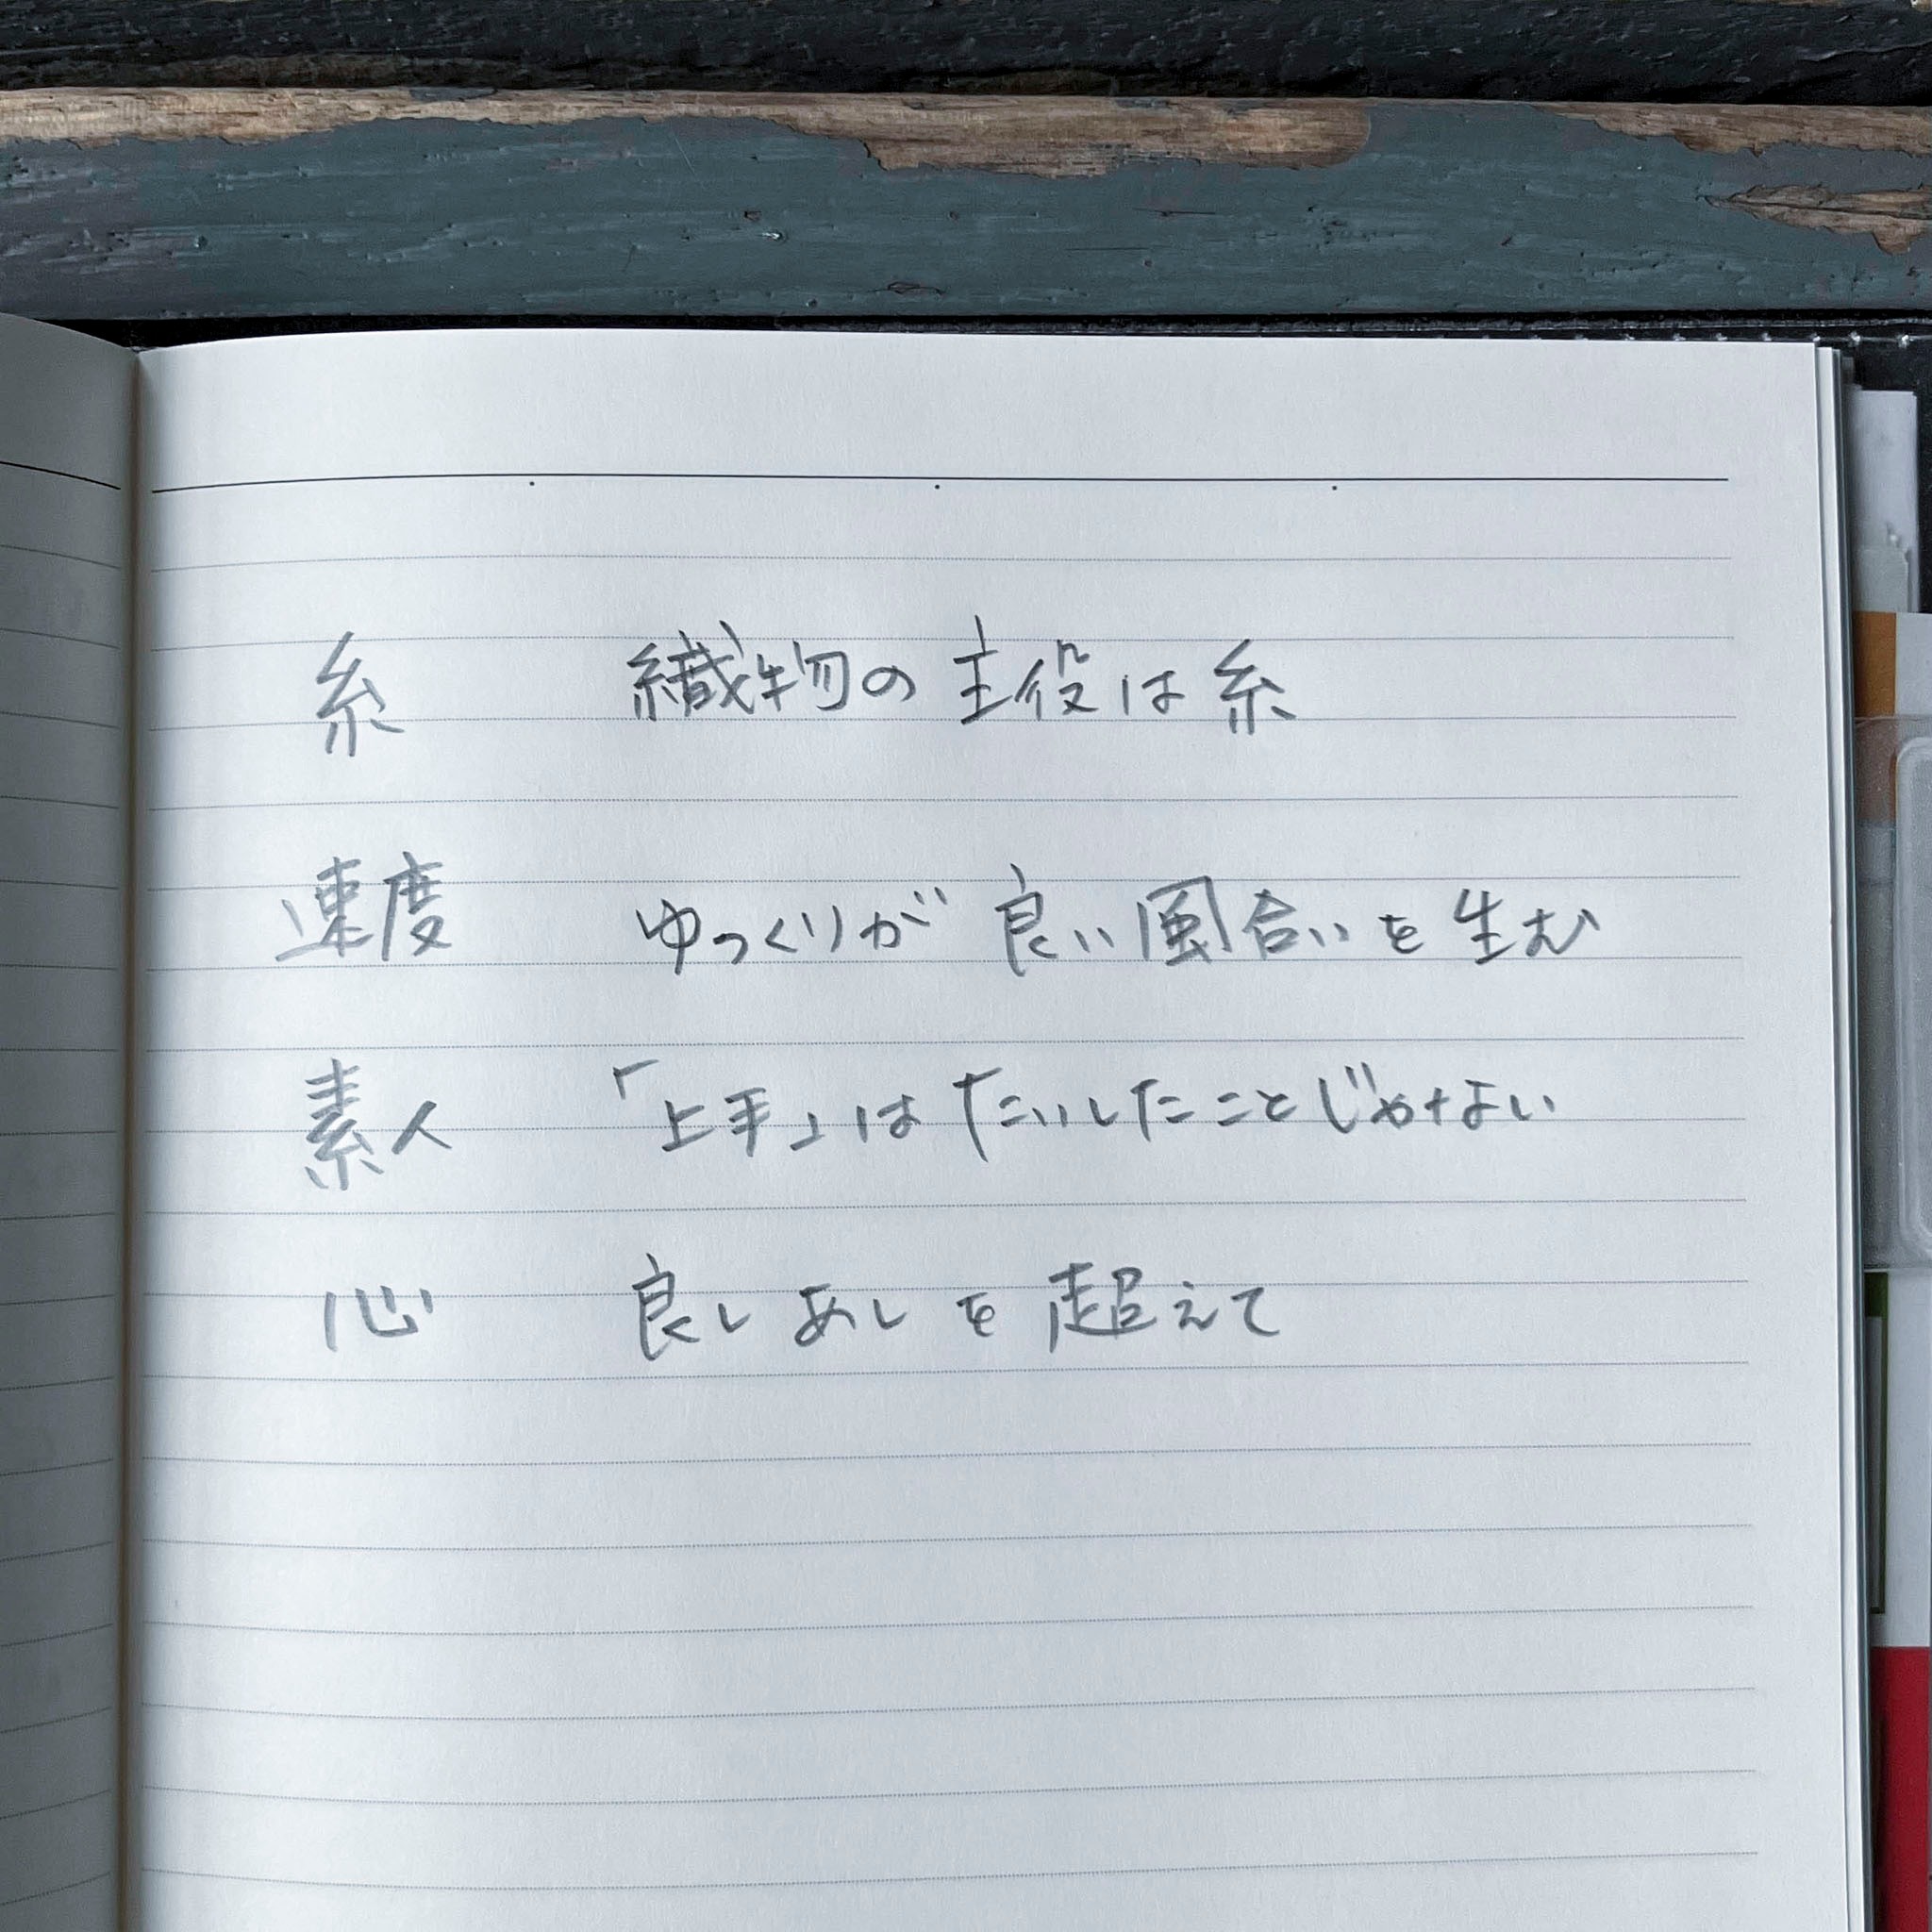 糸 織物の主役は糸
速度 ゆっくりが良い風合いを生む
素人 「上手」はたいしたことじゃない
心 良しあしを超えて